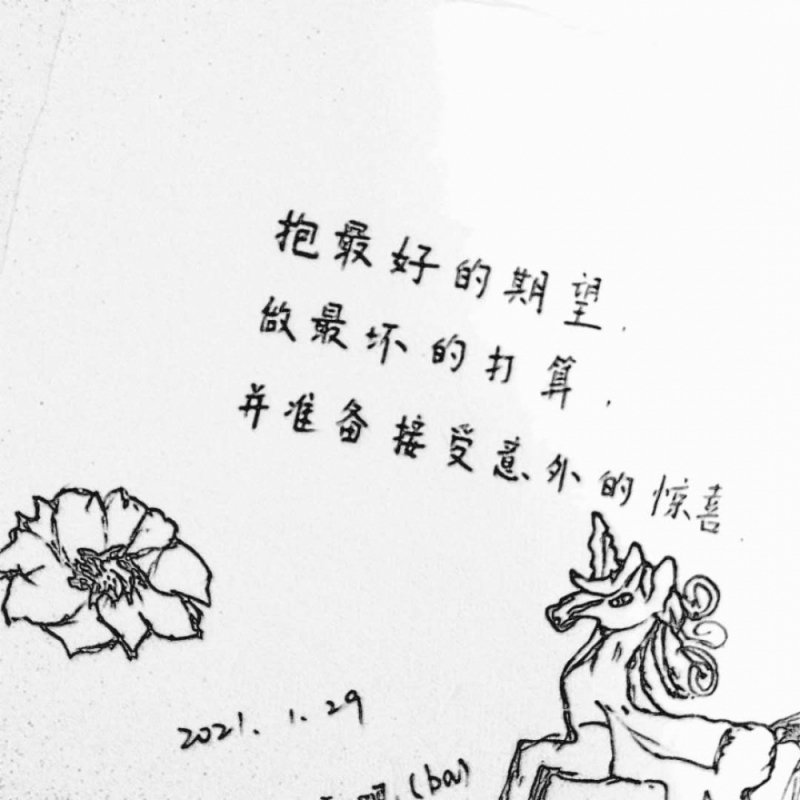 抱最好的期望.
做最坏的打算.
并准备接受意外的惊喜.
2021.1.29
(ba)